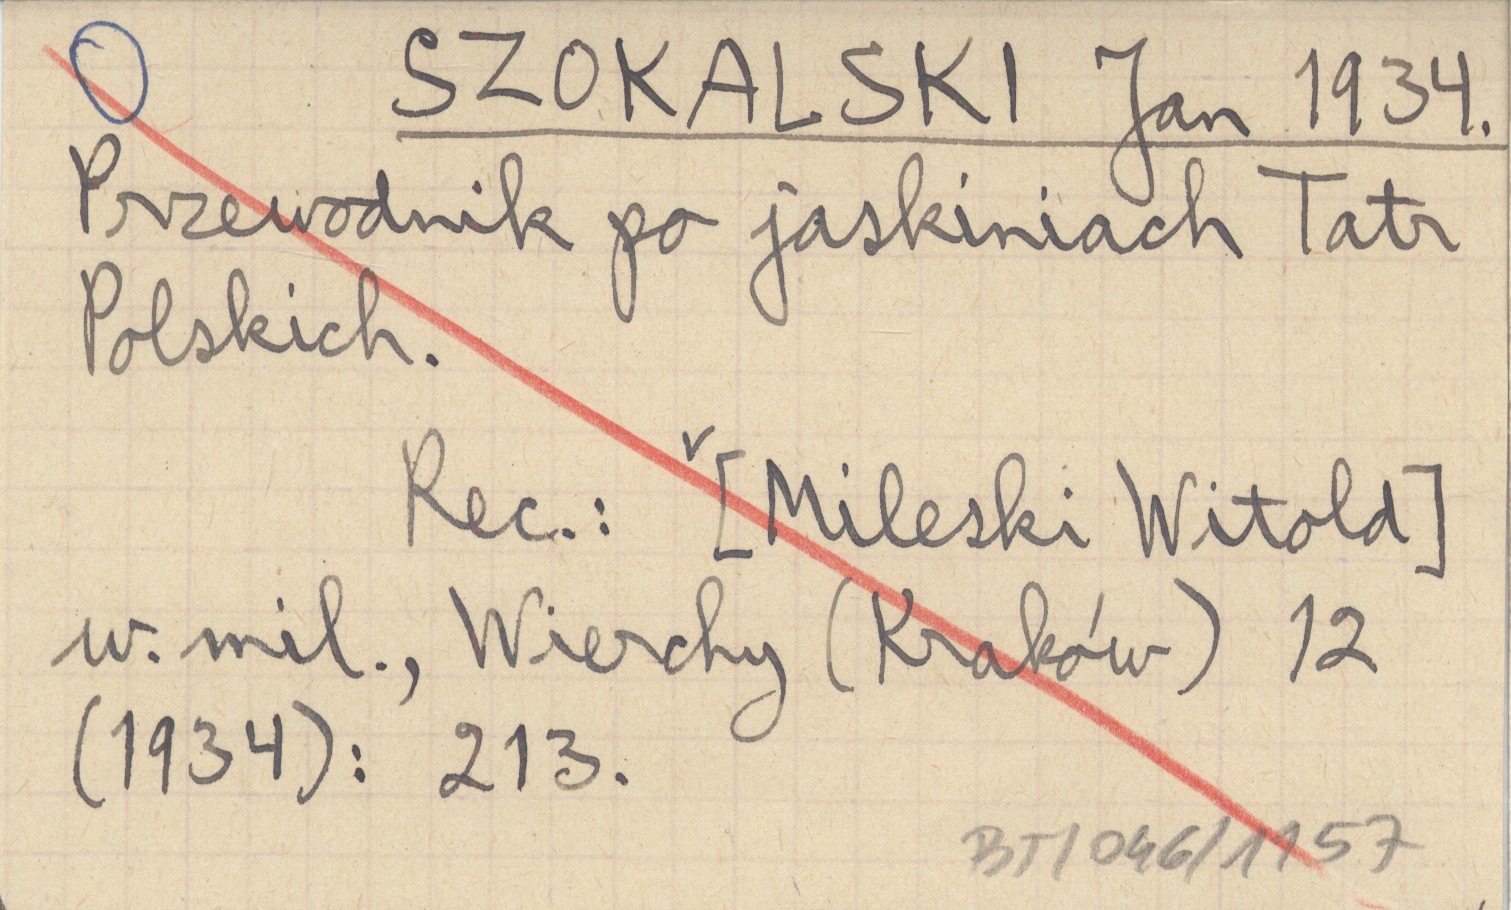 SZOKALSKI Jan 1934.
Przewodnik po jaskiniach Tatr
Polskich.
Rec.: [Mileski Witold]
w. mil., Wierchy (Kraków) 12
(1934): 213.
BT/046/1157